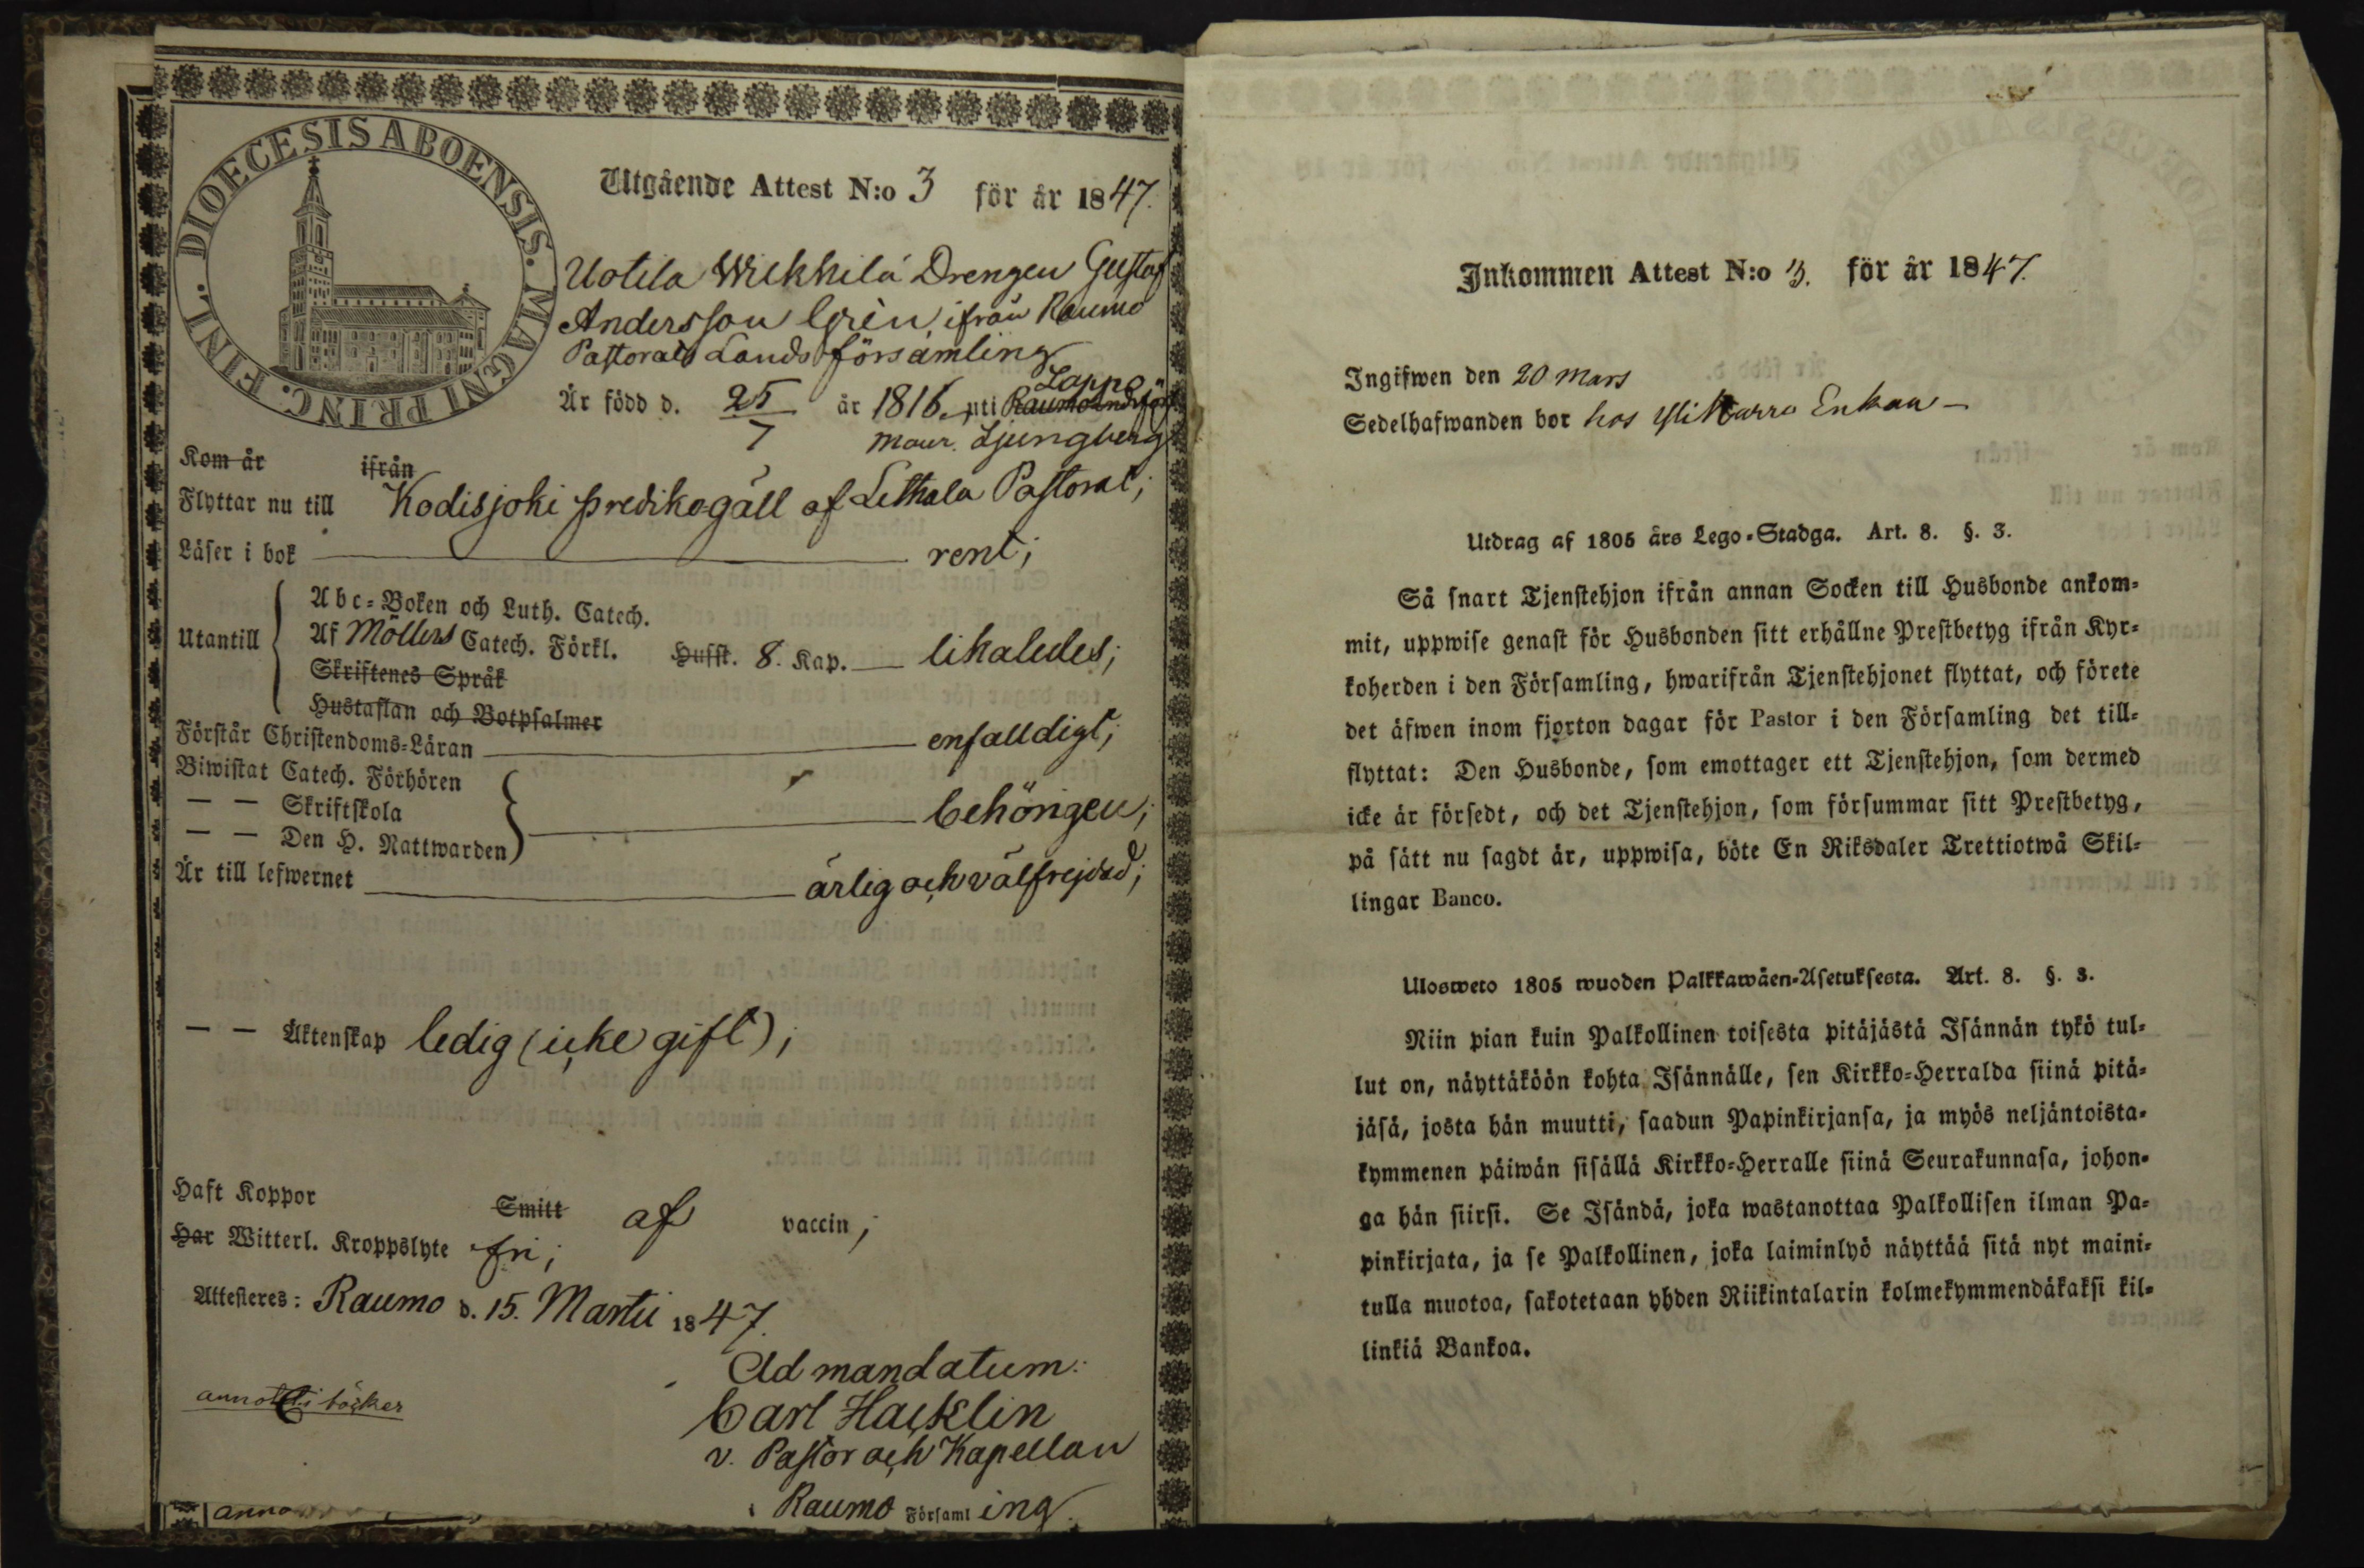 DIOECESIS ABOENSIS. MAGNI PRINC. FINL.
Utgående Attest N:o 3 för år 1847.
Uotila Wilkkilä Drengen Gustaf
Andersson Grèn, ifrån Raumo
Pastorats Landsförsamling
Lappo
Är född d. 25/7 år 1816 uti
maur. Ljungberg
Kom år ifrån
Flyttar nu till Kodisjoki predikogäll af Lethala Pastorat;
Läser i bok rent;
Utantill
Abc-Boken och Luth. Catech.
Af Möllers Catech. Förkl. Husst. 8. Kap. — likaledes;
Skriftenes Språk
Hustaflan och Botpsalmer
Förstår Christendoms-Läran enfalldigt;
Biwistat Catech. Förhören
— — Skriftskola behörigen;
— — Den H. Nattwarden
Är till lefwernet ärlig och välfrejdad;
— — Äktenskap ledig (icke gift);
Haft Koppor Smitt af vaccin;
Har Witterl. Kroppslyte fri;
Attesteres: Raumo d. 15. Martii 1847.
Ad mandatum:
Carl Hacklin
v. Pastor och Kapellan
i Raumo Församling.
böcker
Inkommen Attest N:o 3. för år 1847.
Ingifwen den 20 Mars
Sedelhafwanden bor hos Enkan —
Utdrag af 1805 års Lego-Stadga. Art. 8. §. 3.
Så snart Tjenstehjon ifrån annan Socken till Husbonde ankom-
mit, uppwise genast för Husbonden sitt erhållne Prestbetyg ifrån Kyr-
koherden i den Församling, hwarifrån Tjenstehjonet flyttat, och förete
det äfwen inom fjorton dagar för Pastor i den Församling det till-
flyttat: Den Husbonde, som emottager ett Tjenstehjon, som dermed
icke är försedt, och det Tjenstehjon, som försummar sitt Prestbetyg,
på sätt nu sagdt är, uppwisa, böte En Riksdaler Trettiotwå Skil-
lingar Banco.
Ulosweto 1805 wuoden Palkkawäen-Asetuksesta. Art. 8. §. 3.
Niin pian kuin Palkollinen toisesta pitäjästä Isännän tykö tul-
lut on, näyttäköön kohta Isännälle, sen Kirkko-Herralda siinä pitä-
jäsä, josta hän muutti, saadun Papinkirjansa, ja myös neljäntoista-
kymmenen päiwän sisällä Kirkko-Herralle siinä Seurakunnasa, johon-
ga hän siirsi. Se Isändä, joka wastanottaa Palkollisen ilman Pa-
pinkirjata, ja se Palkollinen, joka laiminlyö näyttää sitä nyt maini-
tulla muotoa, sakotetaan yhden Riikintalarin kolmekymmendäkaksi kil-
linkiä Bankoa.